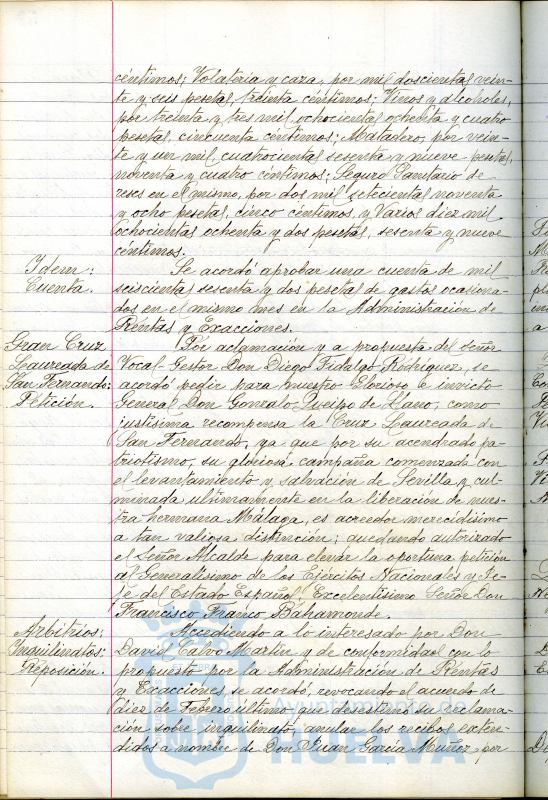 céntimos; Volateria y caza, por mil doscientas vein-
te y seis pesetas, treinta céntimos; Vinos y alcoholes,
por treinta y tres mil, ochocientas ochenta y cuatro
pesetas, cincuenta céntimos; Matadero, por vein-
te y un mil, cuatrocientas sesenta y nueve pesetas,
noventa y cuatro céntimos; Seguro Sanitario de
reses en el mismo, por dos mil setecientas noventa
y ocho pesetas, cinco céntimos, y Varios diez mil
ochocientas ochenta y dos pesetas, sesenta y nueve
céntimos.
Idem:
Cuenta.
Se acordó aprobar una cuenta de mil
seiscientas sesenta y dos pesetas de gastos ocasiona-
dos en el mismo mes en la Administración de
Rentas y Exacciones.
Gran Cruz
Laureada de
San Fernando:
Petición.
Por aclamación y a propuesta del señor
Vocal-Gestor Don Diego Fidalgo Rodríguez, se
acordó pedir para nuestro Glorioso e invicto
General Don Gonzalo Queipo de Llano, como
justísima recompensa la Cruz Laureada de
San Fernando, ya que por su acendrado pa-
triotismo, su gloriosa campaña comenzada con
el levantamiento y salvación de Sevilla y cul-
minada ultimamente en la liberación de nues-
tra hermana Málaga, es acreedor merecidísimo
a tan valiosa distinción; quedando autorizado
el señor Alcalde para elevar la oportuna petición
al Generalísimo de los Ejércitos Nacionales y Je-
fe del Estado Español Excelentísimo Señor Don
Francisco Franco Bahamonde.
Arbitrios:
Inquilinatos:
Reposición.
Accediendo a lo interesado por Don
David Calvo Martín y de conformidad con lo
propuesto por la Administración de Rentas
y Exacciones, se acordó, revocando el acuerdo de
diez de Febrero último que desestimó su reclama-
ción sobre inquilinato, anular los recibos exten-
didos a nombre de Don Juan García Muñoz, por
Ayuntamiento de
HUELVA